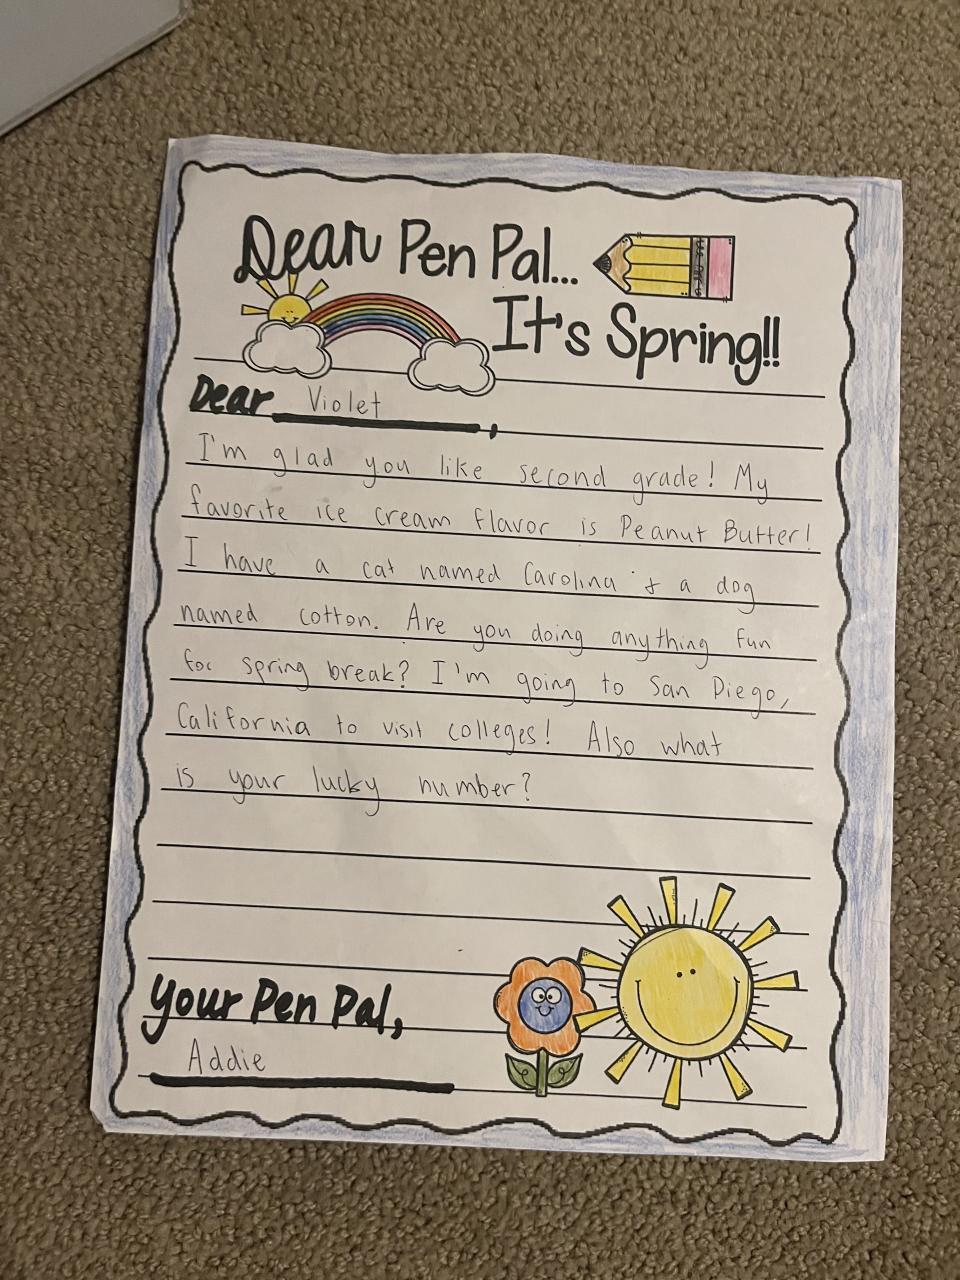 Dear Pen Pal...
It's Spring!!
Dear Violet,
I'm glad you like second grade! My
favorite ice cream flavor is Peanut Butter!
I have a cat named Carolina & a dog
named cotton. Are you doing anything fun
for spring break? I'm going to San Diego,
California to visit colleges! Also what
is your lucky number?
your Pen Pal,
Addie